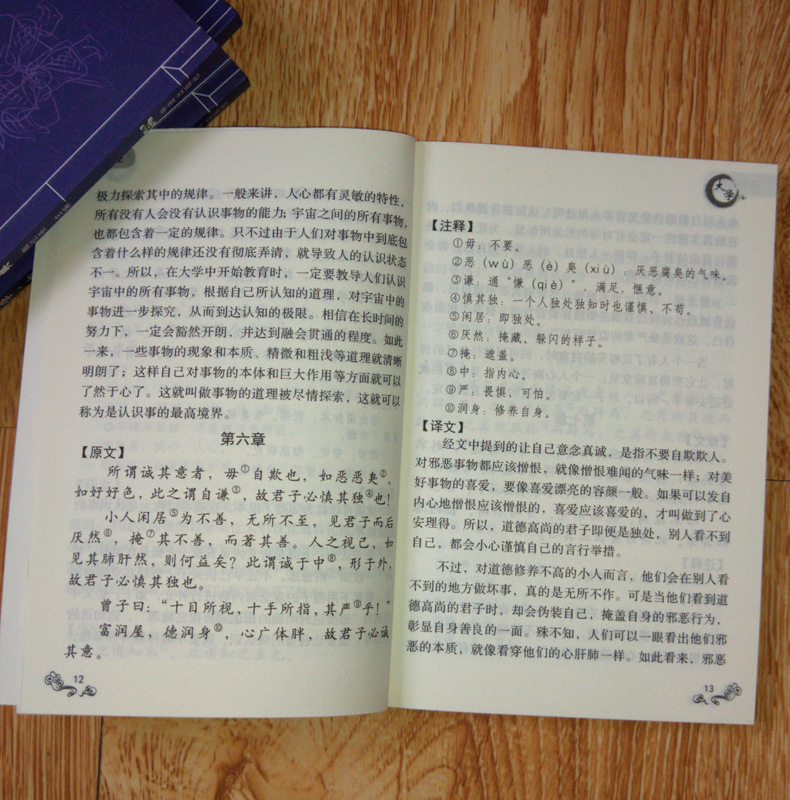 极力探索其中的规律。一般来讲，人心都有灵敏的特性，
所有没有人会没有认识事物的能力；宇宙之间的所有事物，
也都包含着一定的规律。只不过由于人们对事物中到底包
含着什么样的规律还没有彻底弄清，就导致人的认识状态
不一。所以，在大学中开始教育时，一定要教导人们认识
宇宙中的所有事物，根据自己所认知的道理，对宇宙中的
事物进一步探究，从而到达认知的极限。相信在长时间的
努力下，一定会豁然开朗，并达到融会贯通的程度。如此
一来，一些事物的现象和本质、精微和粗浅等道理就清晰
明朗了；这样自己对事物的本体和巨大作用等方面就可以
了然于心了。这就叫做事物的道理被尽情探索，这就可以
称为是认识事的最高境界。
第六章
【原文】
所谓诚其意者，毋①自欺也，如恶恶臭②，
如好好色，此之谓自谦③，故君子必慎其独④也！
小人闲居⑤为不善，无所不至，见君子而后
厌然⑥，掩⑦其不善，而著其善。人之视己，如
见其肺肝然，则何益矣？此谓诚于中⑧，形于外，
故君子必慎其独也。
曾子曰：“十目所视，十手所指，其严⑨乎！”
富润屋，德润身⑩，心广体胖，故君子必诚
其意。
12
大学
【注释】
①毋：不要。
②恶（wù）恶（è）臭（xiù）：厌恶腐臭的气味。
③谦：通“慊（qiè）”，满足，惬意。
④慎其独：一个人独处独知时也谨慎、不苟。
⑤闲居：即独处。
⑥厌然：掩藏、躲闪的样子。
⑦掩：遮盖。
⑧中：指内心。
⑨严：畏惧，可怕。
⑩润身：修养自身。
【译文】
经文中提到的让自己意念真诚，是指不要自欺欺人。
对邪恶事物都应该憎恨，就像憎恨难闻的气味一样；对美
好事物的喜爱，要像喜爱漂亮的容颜一般。如果可以发自
内心地憎恨应该憎恨的，喜爱应该喜爱的，才叫做到了心
安理得。所以，道德高尚的君子即便是独处，别人看不到
自己，都会小心谨慎自己的言行举措。
不过，对道德修养不高的小人而言，他们会在别人看
不到的地方做坏事，真的是无所不作。可是当他们看到道
德高尚的君子时，却会伪装自己，掩盖自身的邪恶行为，
彰显自身善良的一面。殊不知，人们可以一眼看出他们邪
恶的本质，就像看穿他们的心肝肺一样。如此看来，邪恶
13